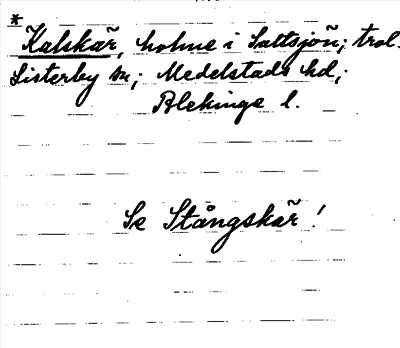 * Kalskär, holme i Saltsjön; trol.
Listerby sn; Medelstads hd;
Blekinge l.
Se Stångskär!